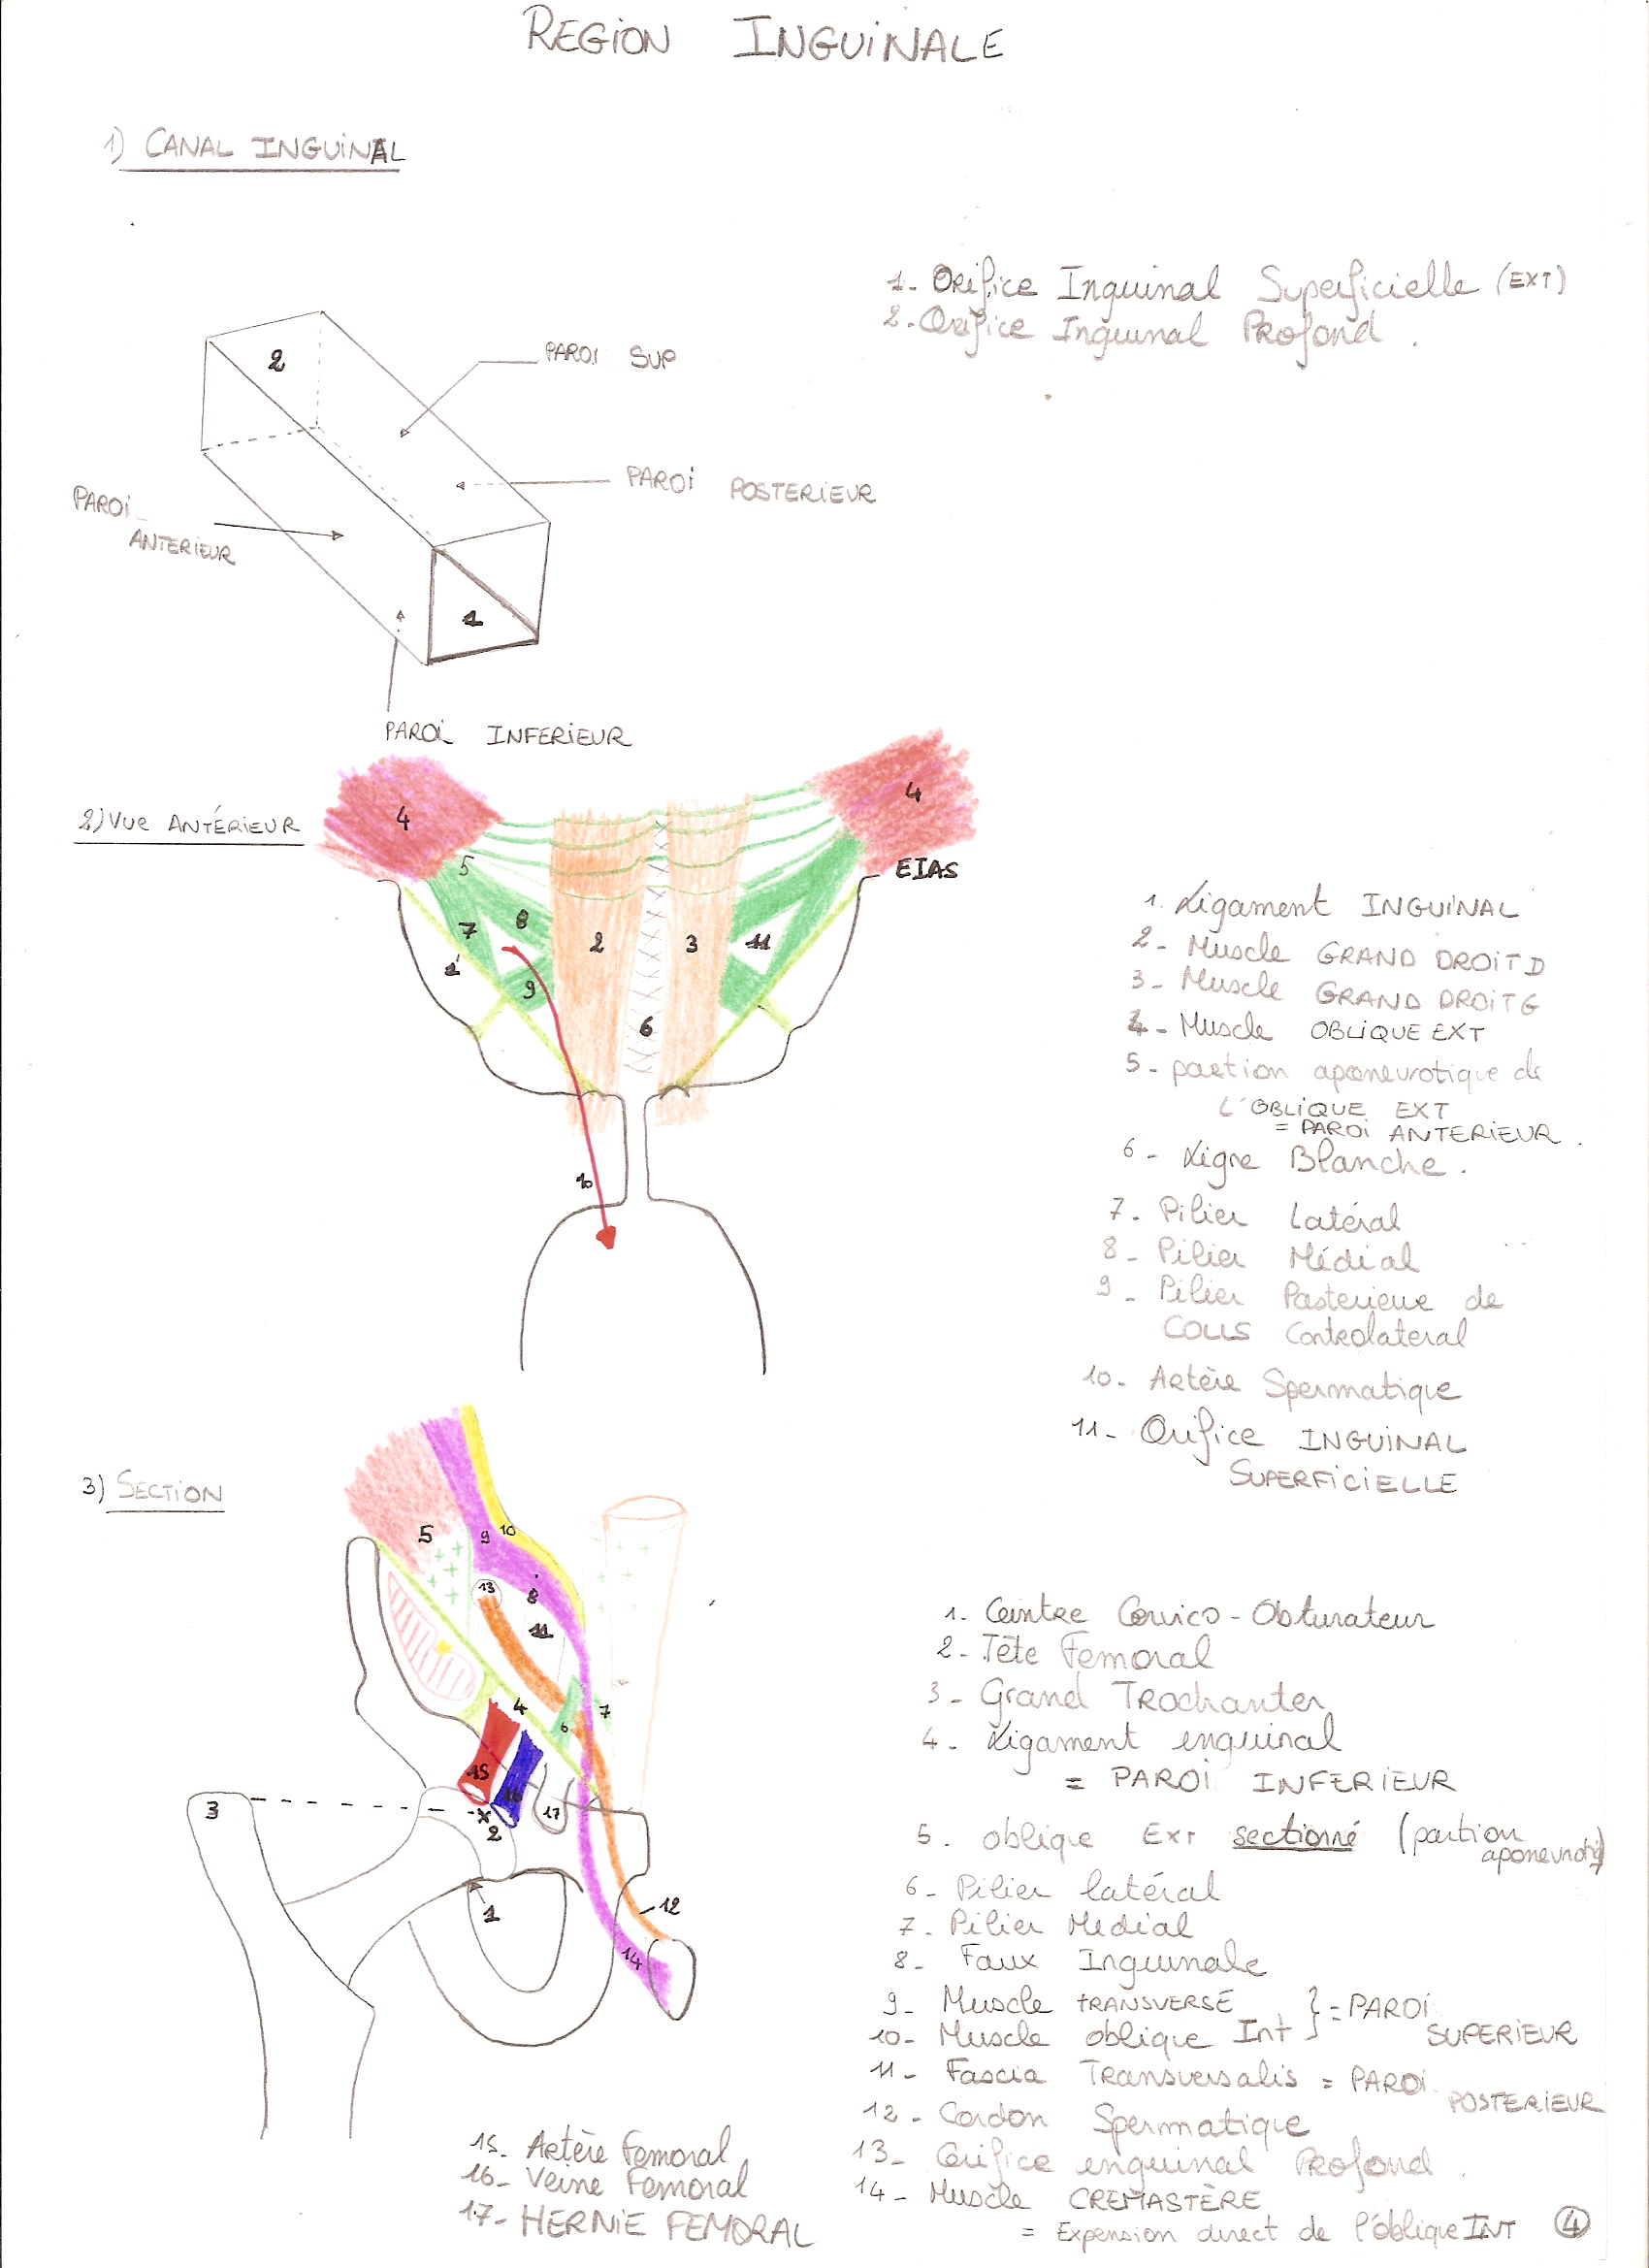 REGION INGUINALE
1) CANAL INGUINAL
1- Orifice Inguinal Superficielle (EXT)
2- Orifice Inguinal Profond.
2
PAROI SUP
PAROI POSTERIEUR
PAROI
ANTERIEUR
1
PAROI INFERIEUR
2) VUE ANTÉRIEUR
4
4
5
EIAS
7
8
2
3
11
1
9
6
10
1. Ligament INGUINAL
2- Muscle GRAND DROIT D
3- Muscle GRAND DROIT G
4- Muscle OBLIQUE EXT
5- portion aponeurotique de
L'OBLIQUE EXT
= PAROI ANTERIEUR.
6- Ligne Blanche.
7- Pilier Latéral
8- Pilier Médial
9- Pilier Posterieur de
COLLS Controlateral
10- Artère Spermatique
11- Orifice INGUINAL
SUPERFICIELLE
3) SECTION
5
9
10
13
8
11
4
6
7
15
16
17
3
x
2
1
12
14
1. Ceintre Cervico-Obturateur
2- Tête Femoral
3- Grand Trochanter
4- Ligament inguinal
= PAROI INFERIEUR
5. oblique Ext sectionné (portion
aponeurotiq)
6- Pilier latéral
7- Pilier Medial
8- Faux Inguinale
9- Muscle TRANSVERSE
10- Muscle oblique Int } = PAROI
SUPERIEUR
11- Fascia Transversalis = PAROI
POSTERIEUR
12- Cordon Spermatique
13- Orifice inguinal Profond.
14- Muscle CREMASTÈRE
= Expension direct de l'oblique INT
4
15- Artère Femoral
16- Veine Femoral
17- HERNIE FEMORAL